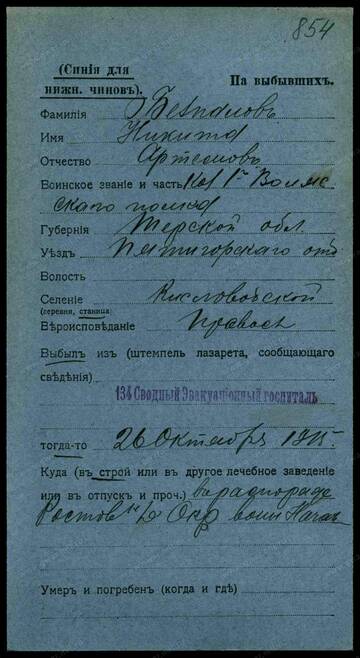 854
(Синія для
нижн. чиновъ).
На выбывшихъ.
Фамилія Безпаловъ
Имя Никита
Отчество Артемовъ
Воинское званіе и часть 1го Волж
скаго полка
Губернія Терской обл.
Уѣздъ Пятигорскаго отд
Волость
Селеніе Кисловодской
(деревня, станица)
Вѣроисповѣданіе Правосл
Выбылъ из (штемпель лазарета, сообщающаго
свѣдѣнія)
134 Сводный Эвакуаціонный госпиталь
тогда-то 26 Октября 1915.
Куда (въ строй или въ другое лечебное заведеніе
или въ отпуск и проч.) въ
Ростов н/Д Окр воин Начал
Умер и погребен (когда и гдѣ)